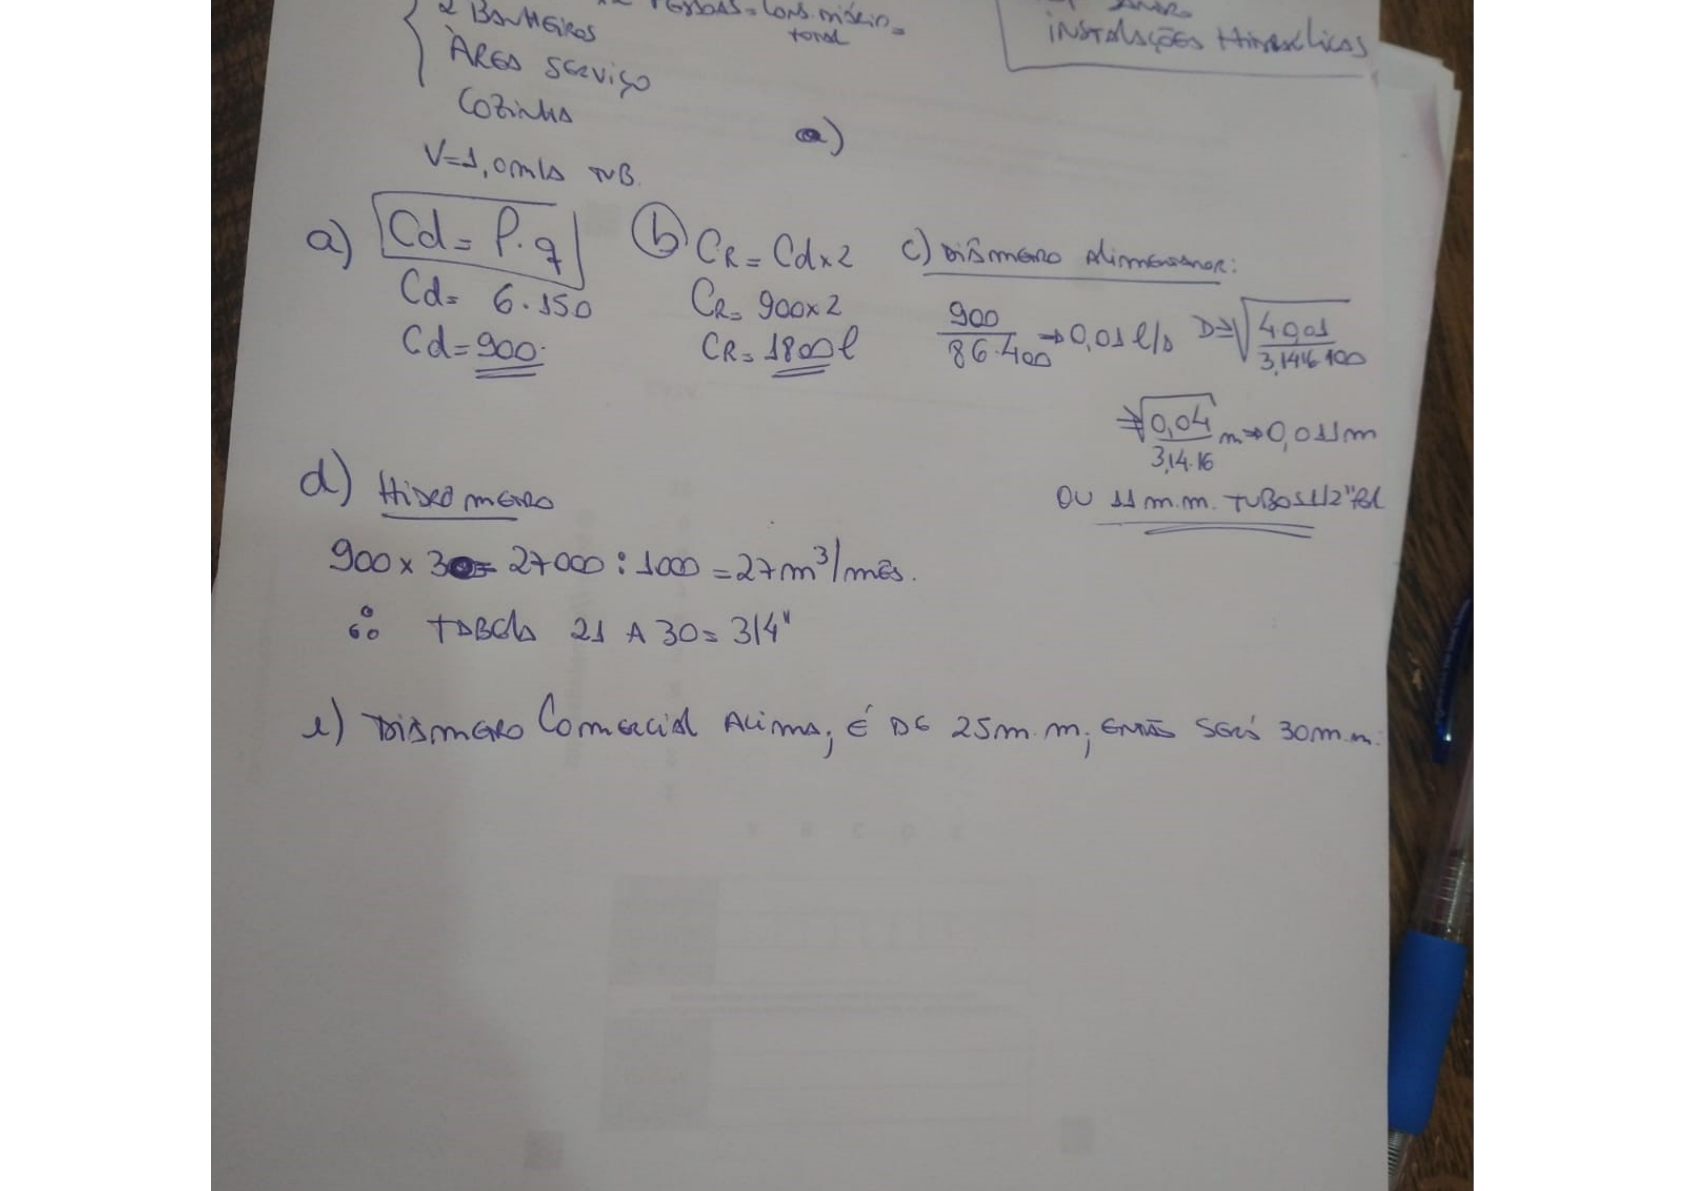 2 BANHEIROS
ÀREA SERVIÇO
COZINHA
PESSOAS = CONS. DIÁRIO =
TOTAL
INSTALAÇÕES HIDRÁULICAS
a)
V=1,0m/s TUB.
a) Cd = P.q
Cd = 6.150
Cd = 900.
b) CR = Cd x 2
CR = 900 x 2
CR = 1800 l
c) DIÂMETRO ALIMENTADOR:
900/86.400 → 0,01 l/s D→√4.0,01/3,1416.100
⇒√0,04/3,14.16 m → 0,011m
OU 11 m.m. TUBOS 1/2" POL
d) HIDRÔMETRO
900 x 30 = 27000 : 1000 = 27m³/mês.
∴ TABELA 21 A 30 = 3/4"
e) DIÂMETRO COMERCIAL ACIMA, É DE 25m.m, ENTÃO SERÁ 30m.m.